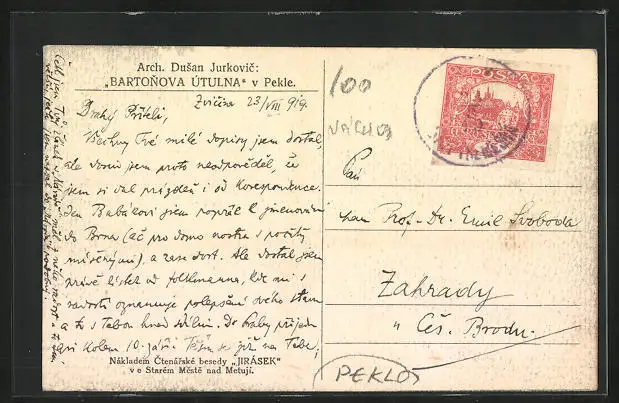 Arch. Dušan Jurkovič:
„BARTOŇOVA ÚTULNA“ v Pekle.
Zvičina 23/VIII 919.
Drahý Příteli,
Všechny Tvé milé dopisy jsem dostal,
ale domů jsem proto neodpověděl, že
jsem si dal prázdeň i od korespondence.
Jen Babákovi jsem popřál k jmenování
do Brna (ač pro domo nostra s pocity
), a zase dost. Ale dostal jsem
právě lístek od , kde mi s
radostí oznamuje polepšení svého stavu
a to s Tebou hned sdílím. Do Prahy přijedu
asi kolem 10. září. Těším se již na Tebe,
Nákladem Čtenářské besedy „JIRÁSEK“
ve Starém Městě nad Metují.
100
NÁCHOD
POŠTA
Pan
pan Prof. Dr. Emil Svoboda
Zahrady
u Čes. Brodu.
PEKLO